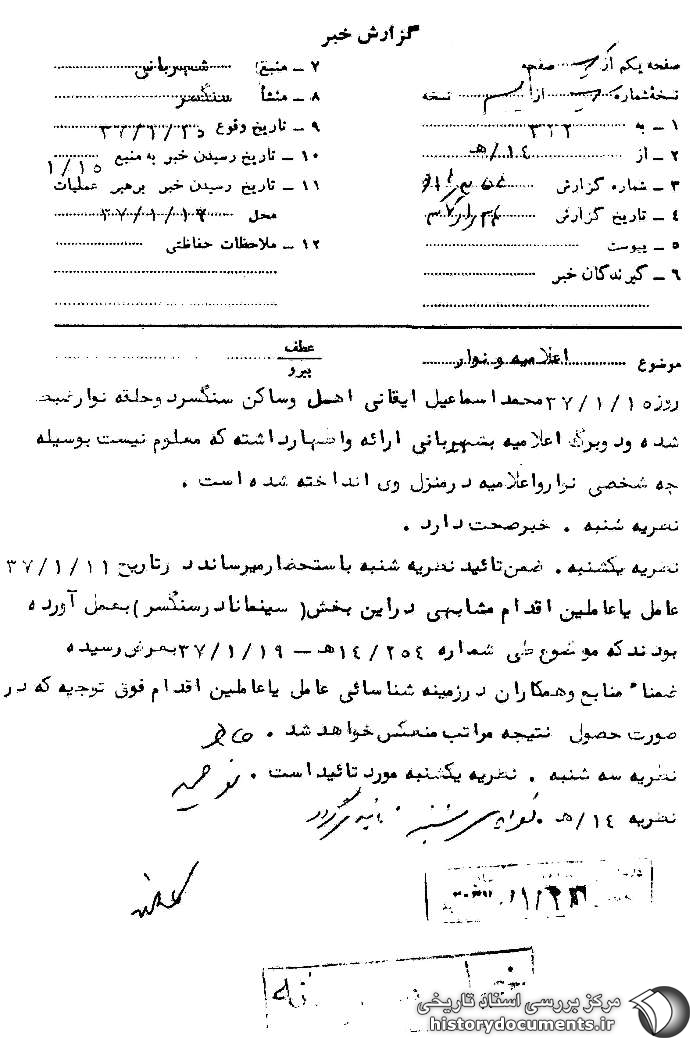 گزارش خبر
صفحه یکم از یک صفحه
نسخهٔ شماره یک از نسخه
۱ - به ۳۲۲
۲ - از ۱۴/هـ
۳ - شماره گزارش
۴ - تاریخ گزارش
۵ - پیوست
۶ - گیرندگان خبر
۷ - منبع شهربانی
۸ - منشأ سنگسر
۹ - تاریخ وقوع
۱۰ - تاریخ رسیدن خبر به منبع ۱/۱۵
۱۱ - تاریخ رسیدن خبر برهبر عملیات
محل
۱۲ - ملاحظات حفاظتی
موضوع اعلامیه و نوار
عطف
پیرو
روز ۳۷/۱/۱۵ محمد اسماعیل ایقانی اهل وساکن سنگسر دوحلقه نوار ضبط
شده ودوبرگ اعلامیه بشهربانی ارائه واظهارداشته که معلوم نیست بوسیله
چه شخصی نوارواعلامیه درمنزل وی انداخته شده است .
نظریه شنبه . خبرصحت دارد .
نظریه یکشنبه . ضمن تائید نظریه شنبه باستحضارمیرساند در تاریخ ۳۷/۱/۱۱
عامل یاعاملین اقدام مشابهی دراین بخش ( سینمانادرسنگسر ) بعمل آورده
بودندکه موضوع طی شماره ۱۴/۲۵۴هـ - ۳۷/۱/۱۹ بعرض رسیده
ضمناً منابع وهمکاران درزمینه شناسائی عامل یاعاملین اقدام فوق توجیه که در
صورت حصول نتیجه مراتب منعکس خواهد شد .
نظریه سه شنبه . نظریه یکشنبه مورد تائیداست .
نظریه ۱۴/هـ . نظریه سه شنبه . تائید میگردد
مرکز بررسی اسناد تاریخی
historydocuments.ir